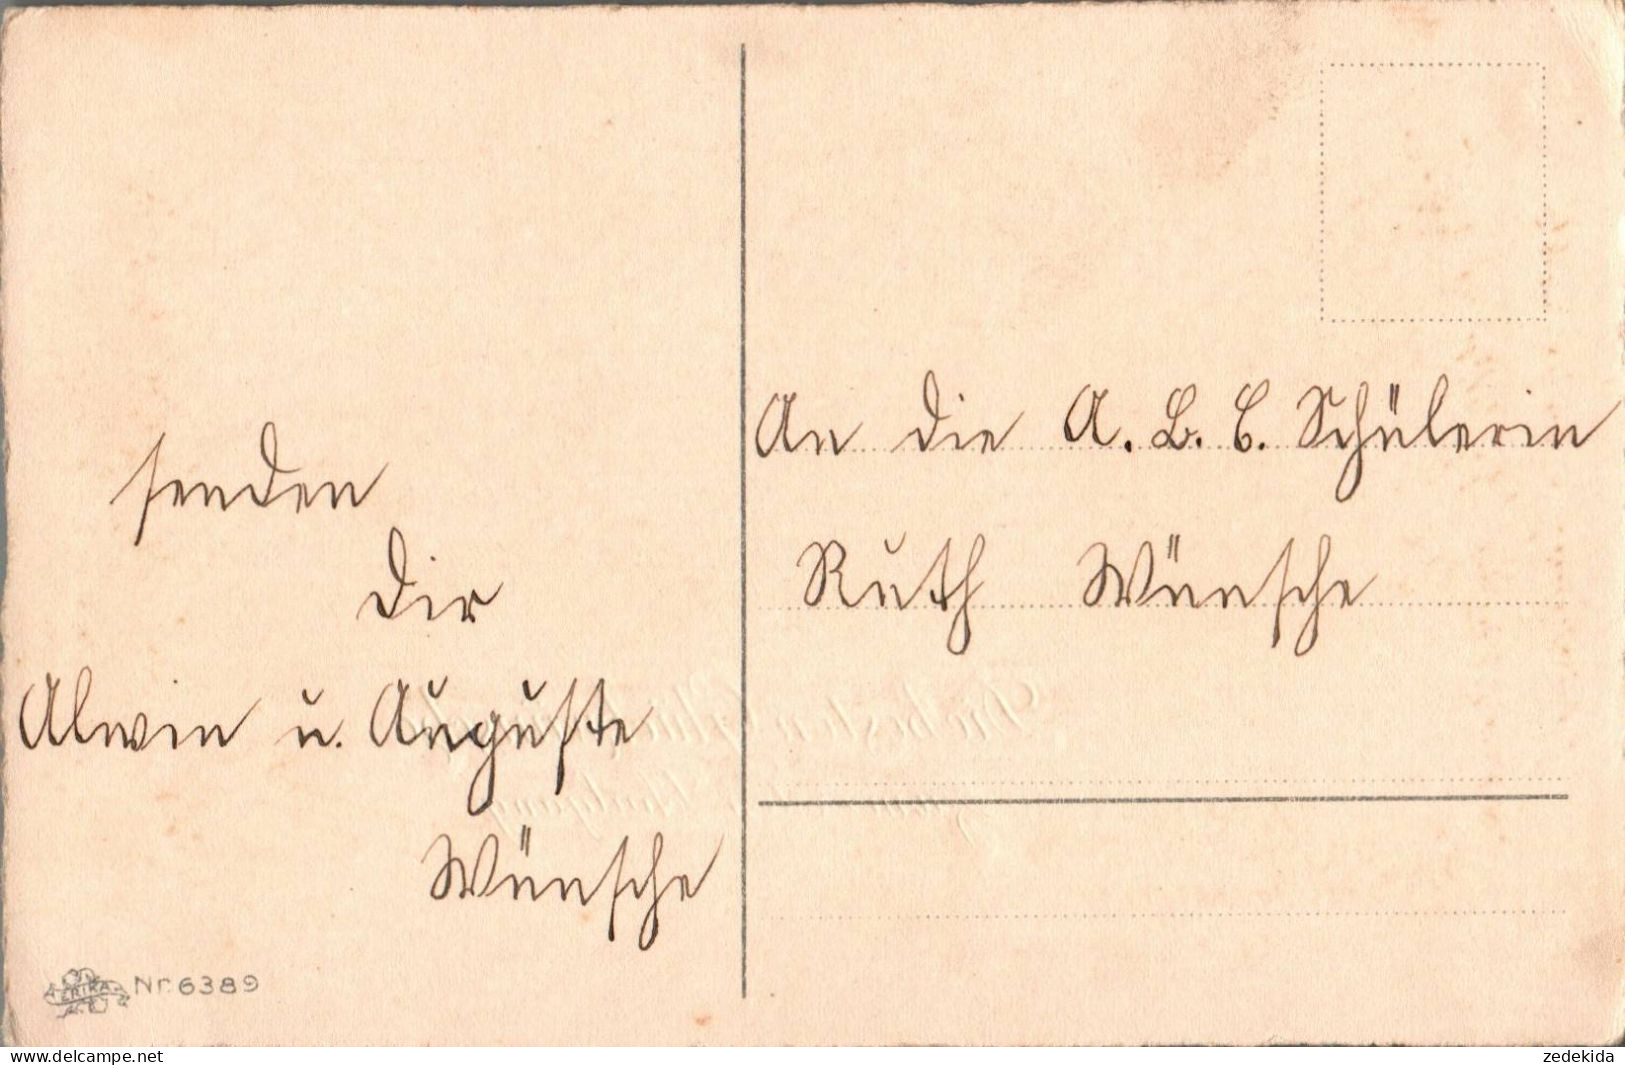 senden
Dir
Alwin u. Auguste
Wünsche
ERIKA Nr. 6389
An die A. B. C. Schülerin
Ruth Wünsche
www.delcampe.net
zedekida